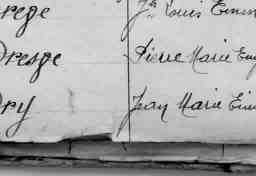 rege Jn Louis Emm
Dresge Pierre Marie Eug
Dry Jean Marie Em